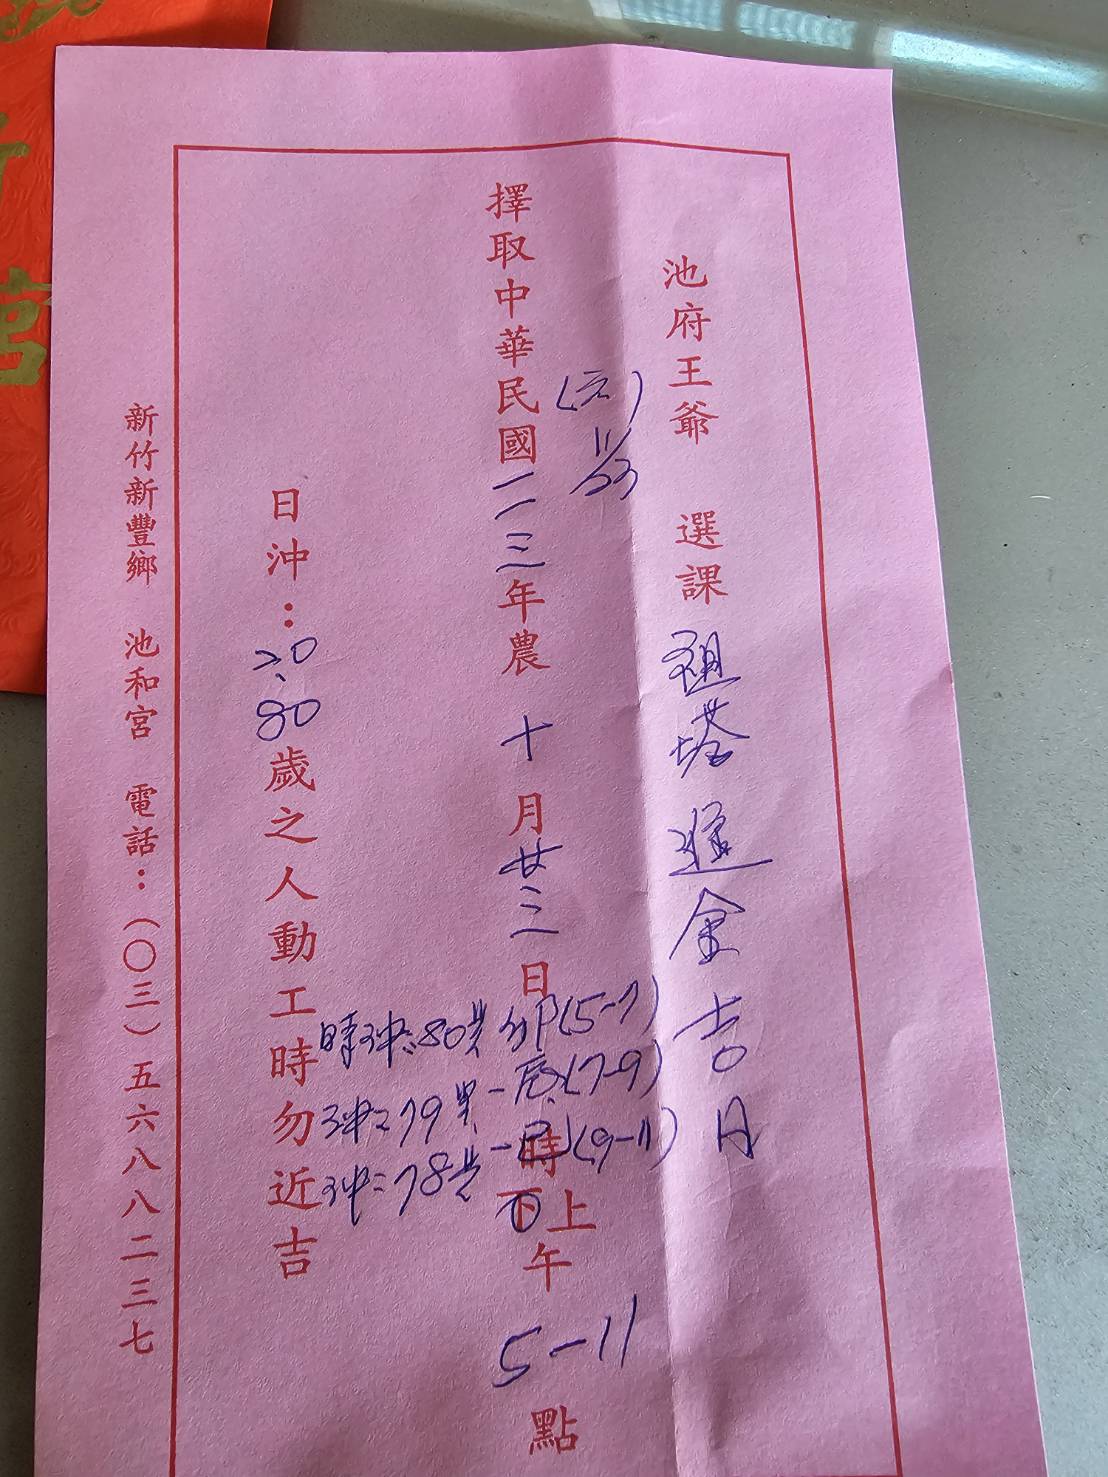 池府王爺 選課 祖塔進金吉日
(六)
11/23
擇取中華民國一一三年農 十 月 廿三 日
卯(5-7) 時沖:80
辰(7-9) 沖:79
巳(9-11) 沖:78
時
上
下
午
5-11
點
日沖:20、80歲之人動工時勿近吉
新竹新豐鄉 池和宮 電話:(〇三)五六八八二三七